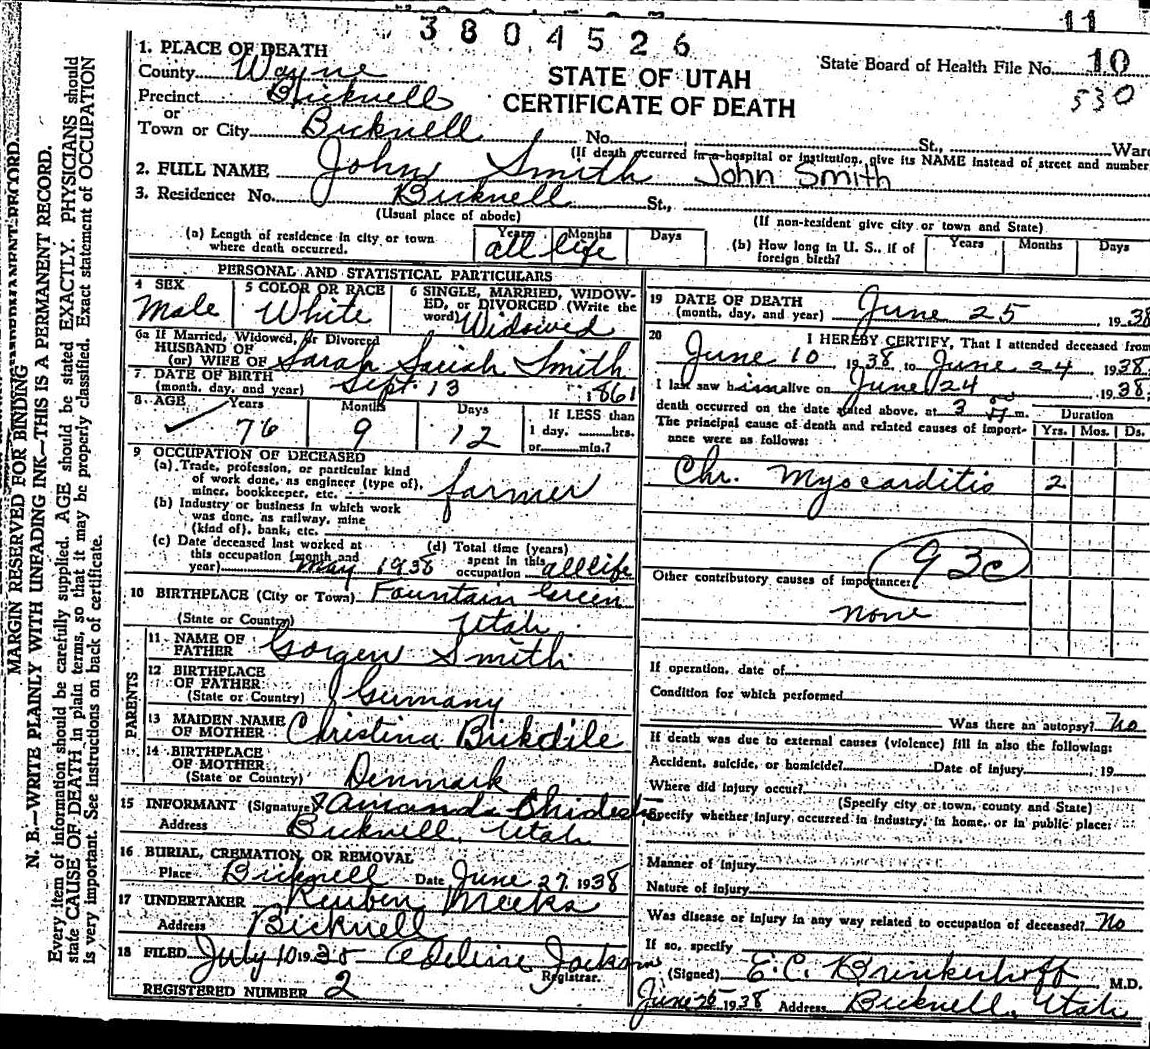 3804526
11
1. PLACE OF DEATH
County Wayne
Precinct Bicknell
or
Town or City Bicknell No. St., Ward
STATE OF UTAH
CERTIFICATE OF DEATH
State Board of Health File No. 10
530
(If death occurred in a hospital or institution, give its NAME instead of street and number
2. FULL NAME John Smith John Smith
3. Residence: No. Bicknell St.,
(Usual place of abode) (If non-resident give city or town and State)
(a) Length of residence in city or town where death occurred. Years Months Days
all life
(b) How long in U. S., if of foreign birth? Years Months Days
PERSONAL AND STATISTICAL PARTICULARS
4 SEX
Male
5 COLOR OR RACE
White
6 SINGLE, MARRIED, WIDOWED, or DIVORCED (Write the word)
Widowed
6a If Married, Widowed, or Divorced
HUSBAND OF
(or) WIFE OF Sarah Smith
7. DATE OF BIRTH
(month, day, and year) Sept 13 1861
8. AGE Years Months Days If LESS than
76 9 12 1 day, hrs.
or min.?
9 OCCUPATION OF DECEASED
(a) Trade, profession, or particular kind
of work done, as engineer (type of),
miner, bookkeeper, etc. farmer
(b) Industry or business in which work
was done, as railway, mine
(kind of), bank, etc.
(c) Date deceased last worked at
this occupation (month and
year) May 1938
(d) Total time (years)
spent in this
occupation all life
10 BIRTHPLACE (City or Town) Fountain Green
(State or Country) Utah
PARENTS
11 NAME OF
FATHER Gorgen Smith
12 BIRTHPLACE
OF FATHER
(State or Country) Germany
13 MAIDEN NAME
OF MOTHER Christina
14 BIRTHPLACE
OF MOTHER
(State or Country) Denmark
15 INFORMANT (Signature) Amanda
Address Bicknell, Utah
16 BURIAL, CREMATION, OR REMOVAL
Place Bicknell Date June 27, 1938
17 UNDERTAKER Reuben Meeks
Address Bicknell
18 FILED July 10 19 Adeline Jackson
Registrar.
REGISTERED NUMBER 2
19 DATE OF DEATH
(month, day, and year) June 25 1938
20 I HEREBY CERTIFY, That I attended deceased from
June 10 1938 to June 24 1938
I last saw him alive on June 24 1938;
death occurred on the date stated above, at 3 m.
The principal cause of death and related causes of importance were as follows:
Duration
Yrs. Mos. Ds.
Chr. Myocarditis 2
93c
Other contributory causes of importance:
none
If operation, date of
Condition for which performed
Was there an autopsy? No
If death was due to external causes (violence) fill in also the following:
Accident, suicide, or homicide? Date of injury , 19
Where did injury occur?
(Specify city or town, county and State)
Specify whether injury occurred in industry, in home, or in public place:
Manner of Injury
Nature of Injury
Was disease or injury in any way related to occupation of deceased? No
If so, specify
(Signed) E. C. Brinkerhoff M.D.
June 25 1938 Address Bicknell, Utah
MARGIN RESERVED FOR BINDING
N. B.—WRITE PLAINLY WITH UNFADING INK—THIS IS A PERMANENT RECORD.
Every item of information should be carefully supplied. AGE should be stated EXACTLY. PHYSICIANS should
state CAUSE OF DEATH in plain terms, so that it may be properly classified. Exact statement of OCCUPATION
is very important. See instructions on back of certificate.